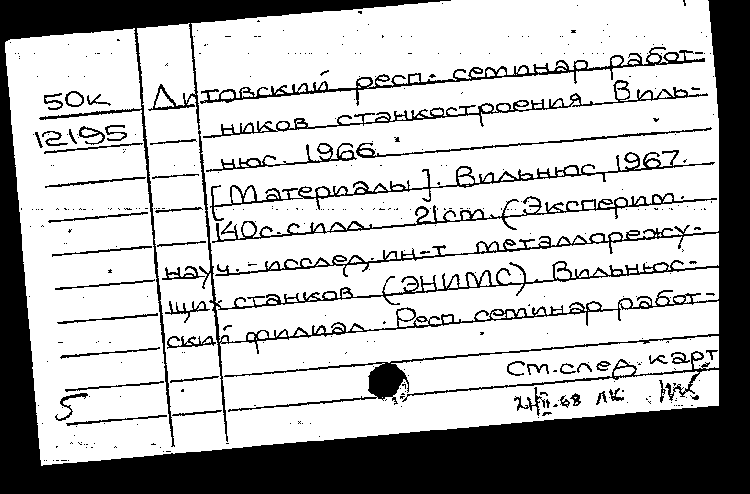 50к Литовский респ. семинар работ-
12195 ников станкостроения. Виль-
нюс. 1966.
[Материалы]. Вильнюс, 1967.
140с. с илл. 21см. (Эксперим.
науч.-исслед. ин-т металлорежу-
щих станков (ЭНИМС). Вильнюс-
ский филиал. Респ. семинар работ-
См. след. карт
5
21/II-68 ЛК